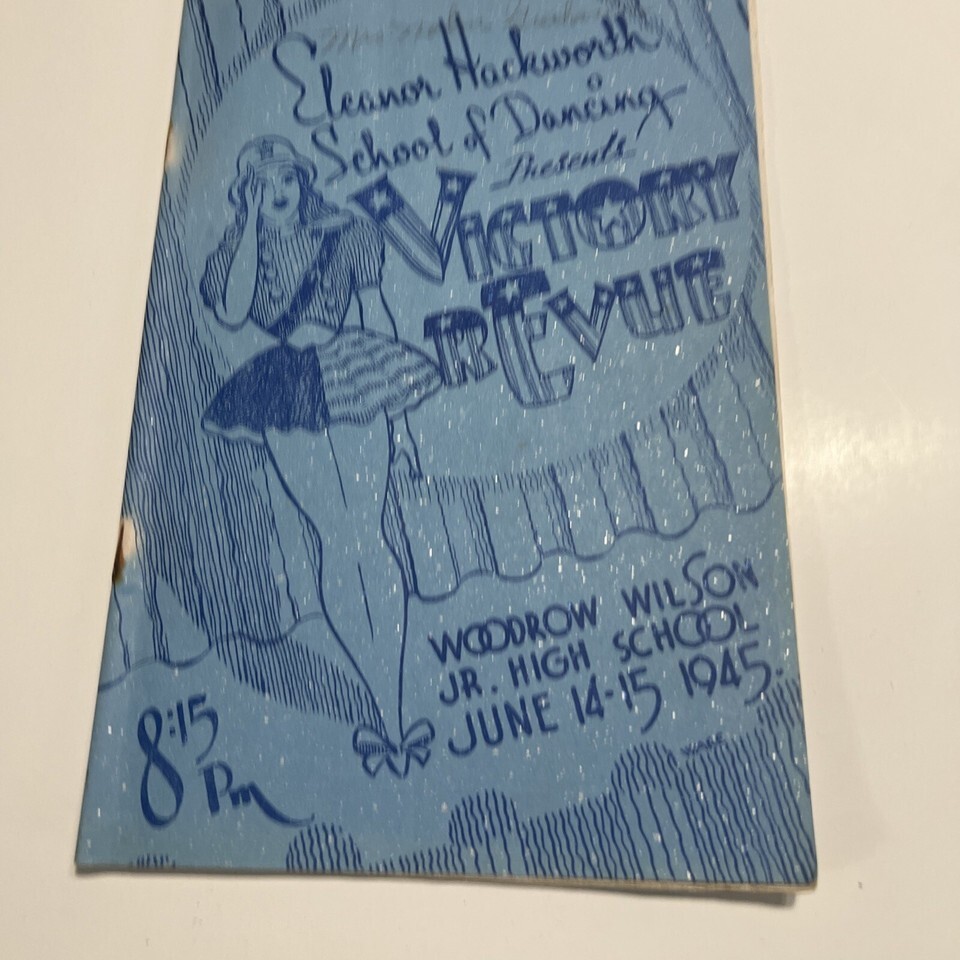 Eleanor Hackworth
School of Dancing
Presents
VICTORY
REVUE
WOODROW WILSON
JR. HIGH SCHOOL
JUNE 14-15 1945.
8:15
Pm
WARE